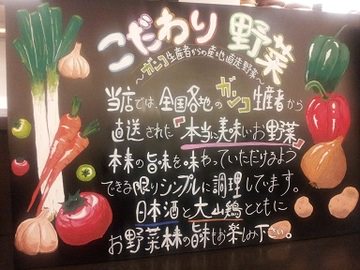 こだわり野菜
〜ガンコ生産者からの産地直送野菜〜
当店では、全国各地のガンコ生産者から
直送された『本当に美味しいお野菜』
本来の旨味を味わっていただけるよう
できる限りシンプルに調理しています。
日本酒と大山鶏とともに
お野菜本来の旨味もお楽しみ下さい。